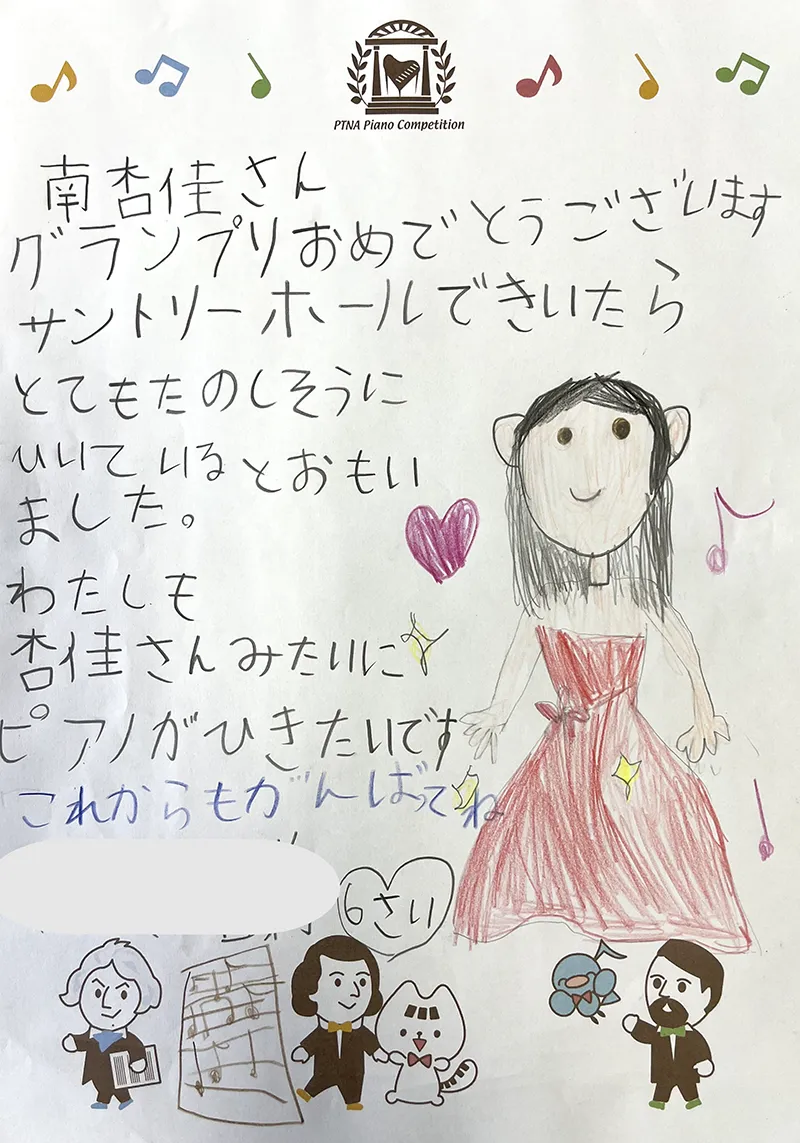 PTNA Piano Competition
南杏佳さん
グランプリおめでとうございます
サントリーホールできいたら
とてもたのしそうに
ひいているとおもい
ました。
わたしも
杏佳さんみたいに
ピアノがひきたいです
これからもがんばってね
6さい